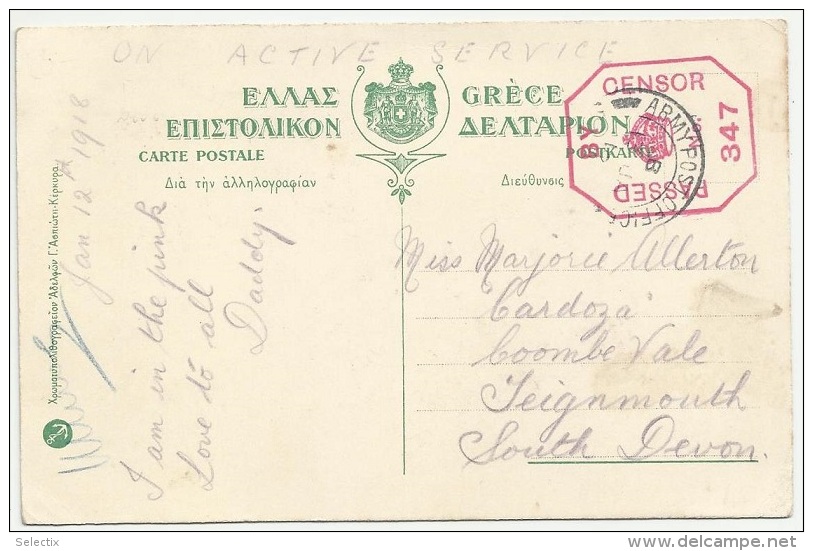 ON ACTIVE SERVICE
ΕΛΛΑΣ
GRÈCE
ΕΠΙΣΤΟΛΙΚΟΝ
ΔΕΛΤΑΡΙΟΝ
CARTE POSTALE
POSTKARTE
Διὰ τὴν ἀλληλογραφίαν
Διεύθυνσις
PASSED BY CENSOR
No. 347
ARMY POST OFFICE
Jan 12th 1918
I am in the pink
Love to all
Daddy.
Miss Marjorie Allerton
"Cardoza"
Coombe Vale
Teignmouth
South Devon.
Χρωματυπολιθογραφεῖον Ἀδελφῶν Γ. Ἀσπιώτη-Κέρκυρα.
© Selectix
www.delcampe.net